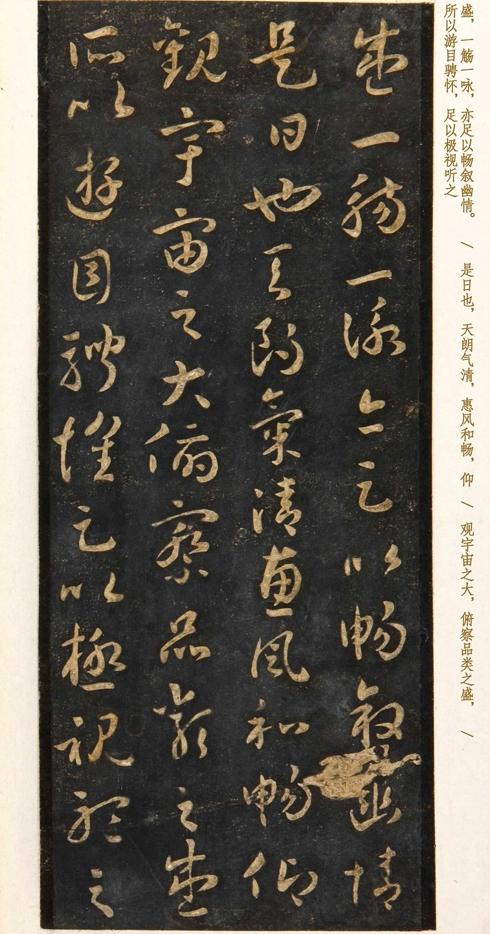 盛，一觞一咏，亦足以畅叙幽情。 \ 是日也，天朗气清，惠风和畅，仰 \ 观宇宙之大，俯察品类之盛， \
所以游目骋怀，足以极视听之
盛一觴一詠亦足以暢敘幽情
是日也天朗氣清惠風和暢仰
觀宇宙之大俯察品類之盛
所以遊目騁懷足以極視聽之